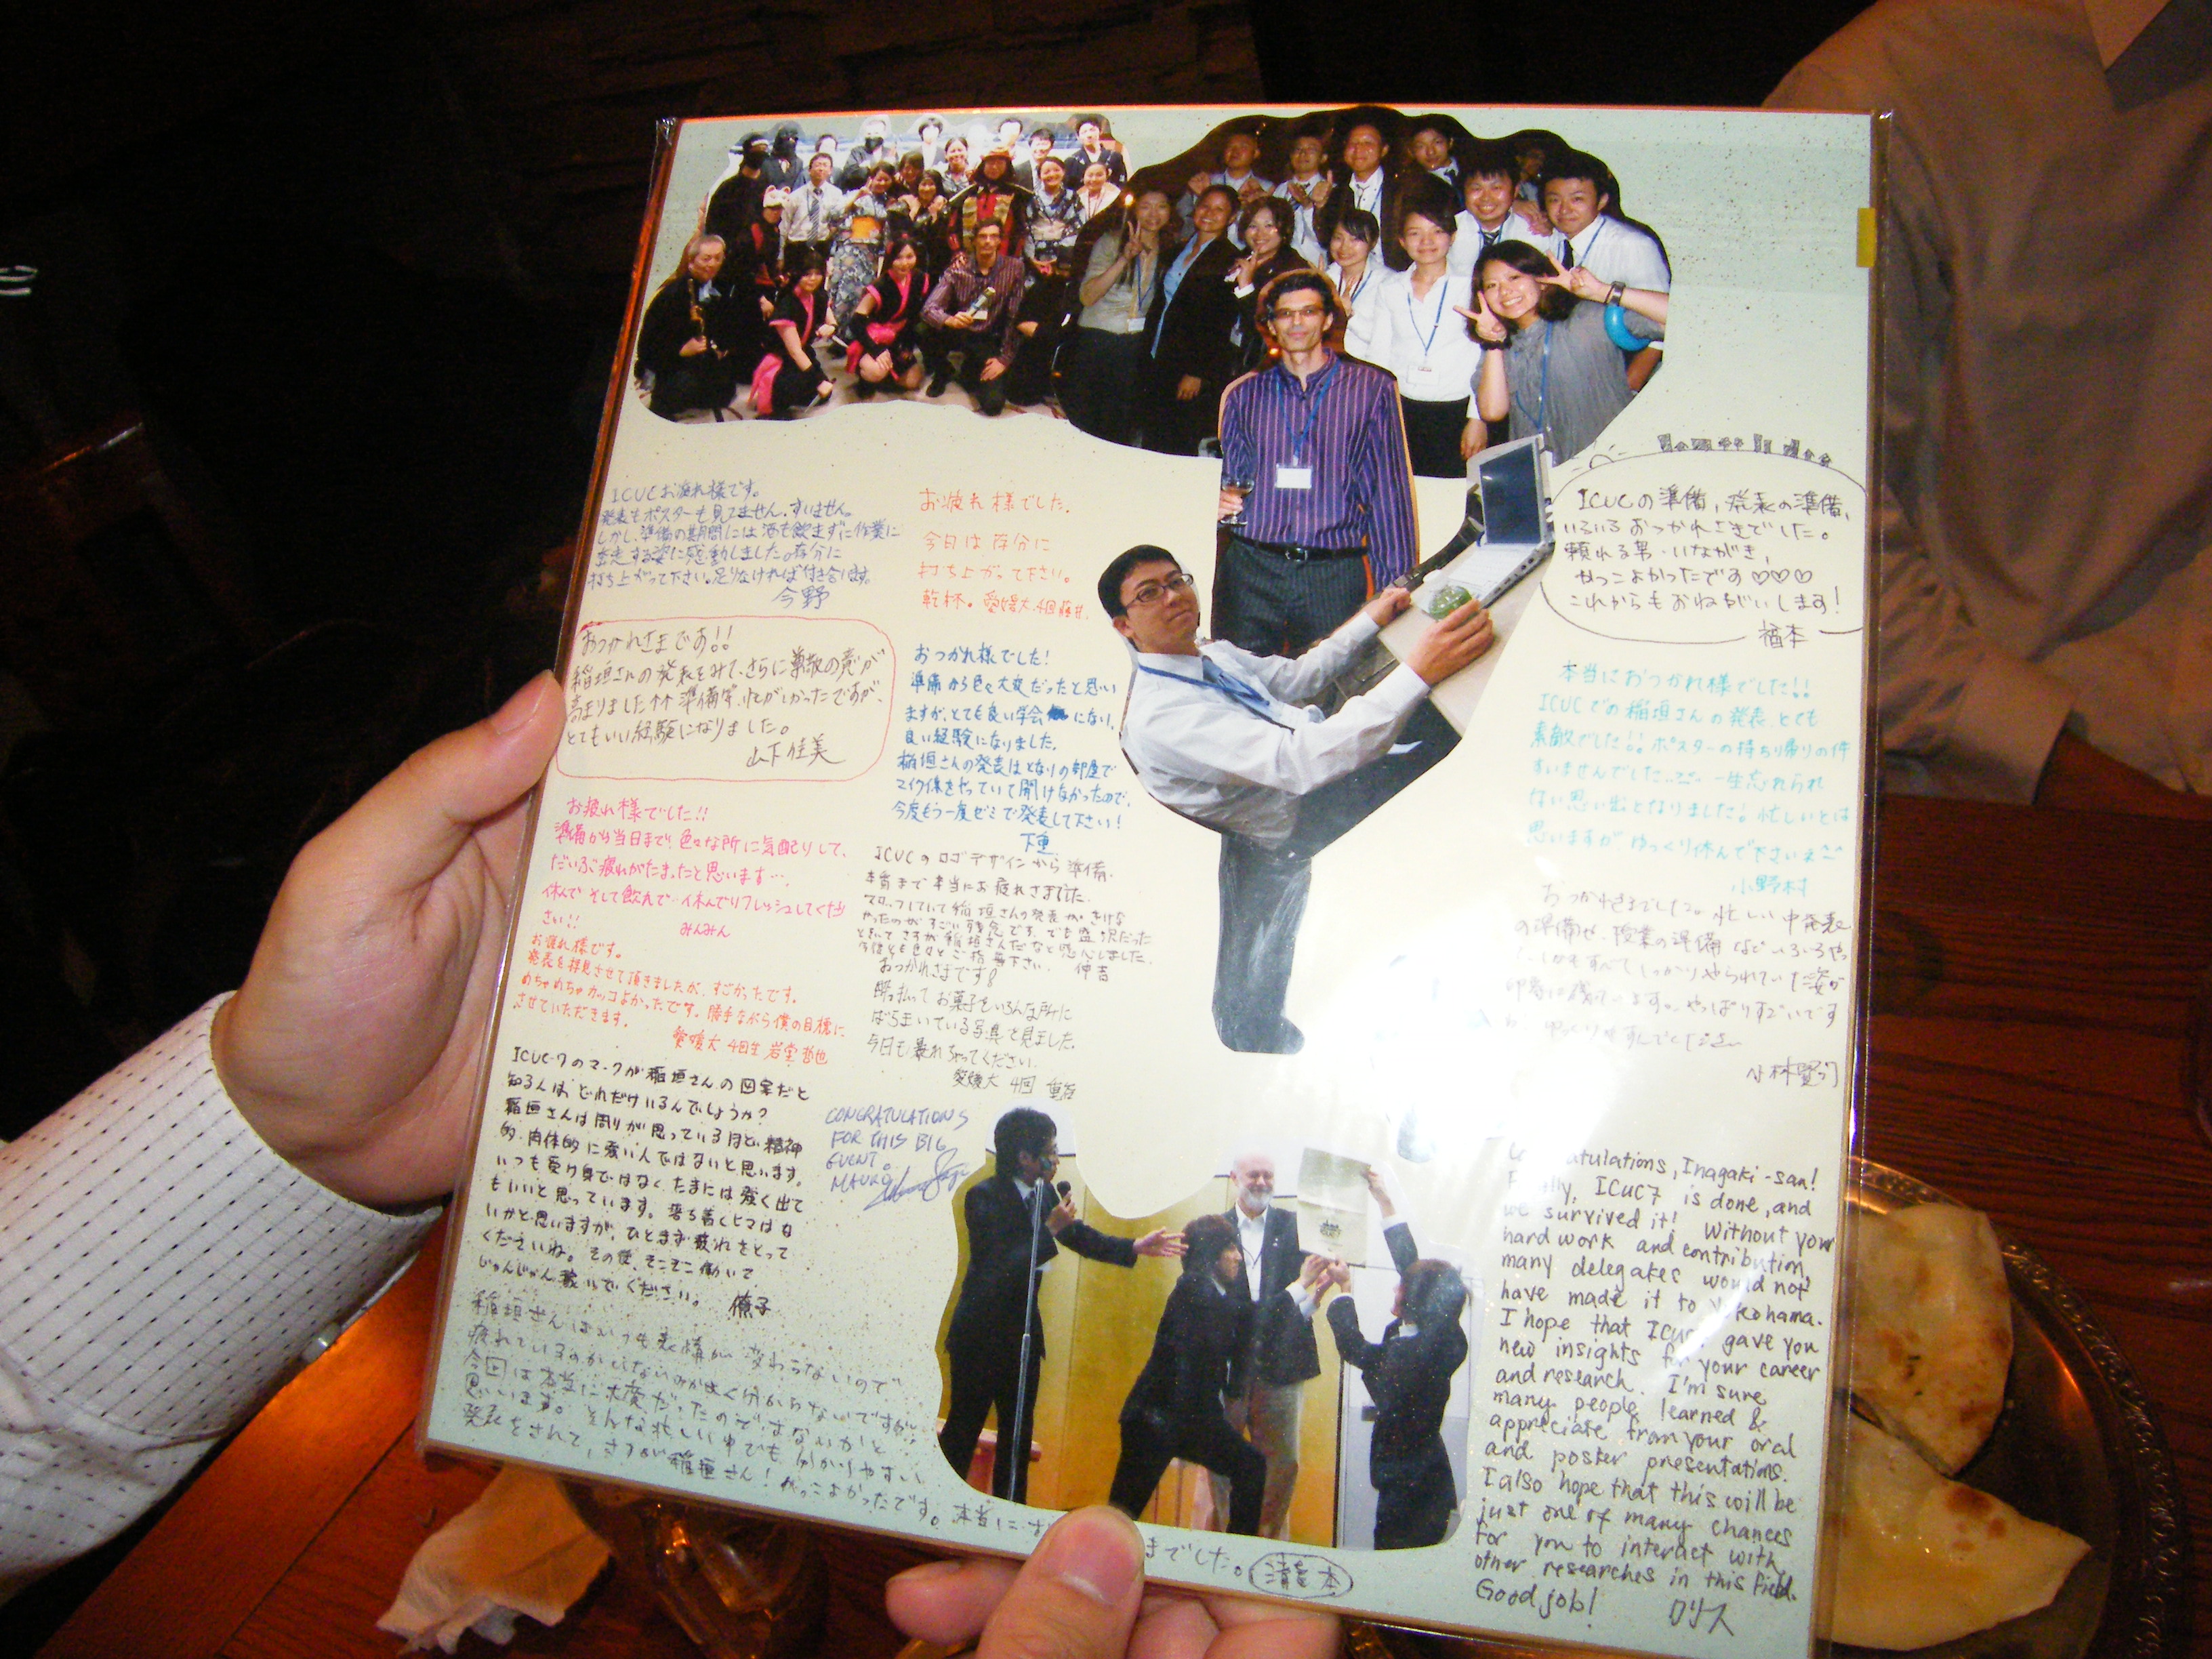 ICUCお疲れ様です。
発表もポスターも見てません。すいません。
しかし、準備の期間には酒も飲まずに作業に
奔走する姿に感動しました。存分に
打ち上がって下さい。足りなければ付き合います。
今野
おつかれさまです!!
稲垣さんの発表をみて、さらに尊敬の意が
高まりました↑↑ 準備等、忙がしかったですが、
とてもいい経験になりました。
山下佳美
お疲れ様でした!!
準備から当日まで、色々な所に気配りして、
だいぶ疲れがたまったと思います…。
休んで そして飲んで 休んでリフレッシュしてくだ
さい!!
みんみん
お疲れ様です。
発表を拝見させて頂きましたが、すごかったです。
めちゃめちゃカッコよかったです。勝手ながら僕の目標に
させていただきます。
愛媛大 4回生 岩室哲也
ICUC-7のマークが稲垣さんの図案だと
知る人は、どれだけいるんでしょうか?
稲垣さんは周りが思っている程、精神
的・肉体的に 人ではないと思います。
いつも受け身ではなく、たまには強く出て
もいいと思っています。落ち着くヒマはな
いかと思いますが、ひとまず疲れをとって
くださいね。その後、そこそこ働いて
じゃんじゃん 下さい。
稲垣さんはいつも表情が変わらないので
疲れているのか じゃないのかよく分からないですが、
今回は本当に大変だったのではないかと
思います。そんな忙しい中でも分かりやすい
発表をされて、さすが稲垣さん! かっこよかったです。本当に までした。
お疲れ様でした。
今日は存分に
打ち上がって下さい。
乾杯。 愛媛大 4回 藤井
おつかれ様でした!
準備から色々大変だったと思い
ますが、とても良い学会になり、
良い経験になりました。
稲垣さんの発表はとなりの部屋で
マイク係をやっていて聞けなかったので、
今度もう一度ゼミで発表して下さい!
下重
ICUCのロゴデザインから準備、
本番まで本当にお疲れさまでした。
稲垣さんの発表が きけな
かったのがすごい残念です。でも盛況だった
ときいてさすが稲垣さんだなと感心しました。
今後とも色々とご指導下さい。 仲吉
おつかれさまです!
酔っ払ってお菓子をいろんな所に
ばらまいている写真を見ました。
今日も暴れちゃってください。
愛媛大 4回
CONGRATULATIONS
FOR THIS BIG
EVENT.
MAURO
ICUCの準備、発表の準備、
いろいろおつかれさまでした。
頼れる男・いながき、
かっこよかったです♡♡♡
これからもおねがいします!
楢本
本当におつかれ様でした!!
ICUCでの稲垣さんの発表、とても
素敵でした!! ポスターの持ち帰りの件
すいませんでした… 一生忘れられ
ない思い出となりました! 忙しいとは
思いますが、ゆっくり休んで下さいネ
小野村
おつかれさまでした。忙しい中発表
の準備や、授業の準備などいろいろやっ
しかもすべてしっかりやられていた姿が
印象に残っています。やっぱりすごいです
ゆっくりやすんでください
小林賢
Inagaki-san!
ICUC7 is done, and
we survived it! Without your
hard work and contribution,
many delegates would not
have made it to Yokohama.
I hope that gave you
new insights for your career
and research. I'm sure
many people learned &
appreciate from your oral
and poster presentations.
I also hope that this will be
just one of many chances
for you to interact with
other researches in this field.
Good job!